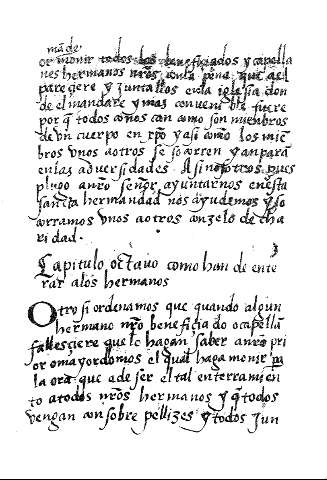 mãde
or monir todos los beneficiados y capella
nes hermanos nr̃os con la pena que a el
pareçiere y juntallos en la iglesia don
de el mandare y mas conveni ble fuere
por q̃ todos como son miembros
de vn cuerpo en xp̃o y asi como los mie
bros vnos a otros se socorren y anparã
en las adversidades. Asi nosotros pues
plugo a nr̃o señor ayuntarnos en esta
sancta hermandad nos ayudemos y so
corramos vnos a otros con zelo de cha
ridad.
Capitulo octauo como han de ente
rar a los hermanos
Otro si ordenamos que quando algun
hermano nr̃o beneficiado o capellã
fallesçiere que lo hagan saber a nr̃o pri
or o mayordomos el qual haga monir pa
la ora que a de ser el tal enterramien
to a todos nr̃os hermanos y q̃ todos
vengan con sobre pellizes y todos jun